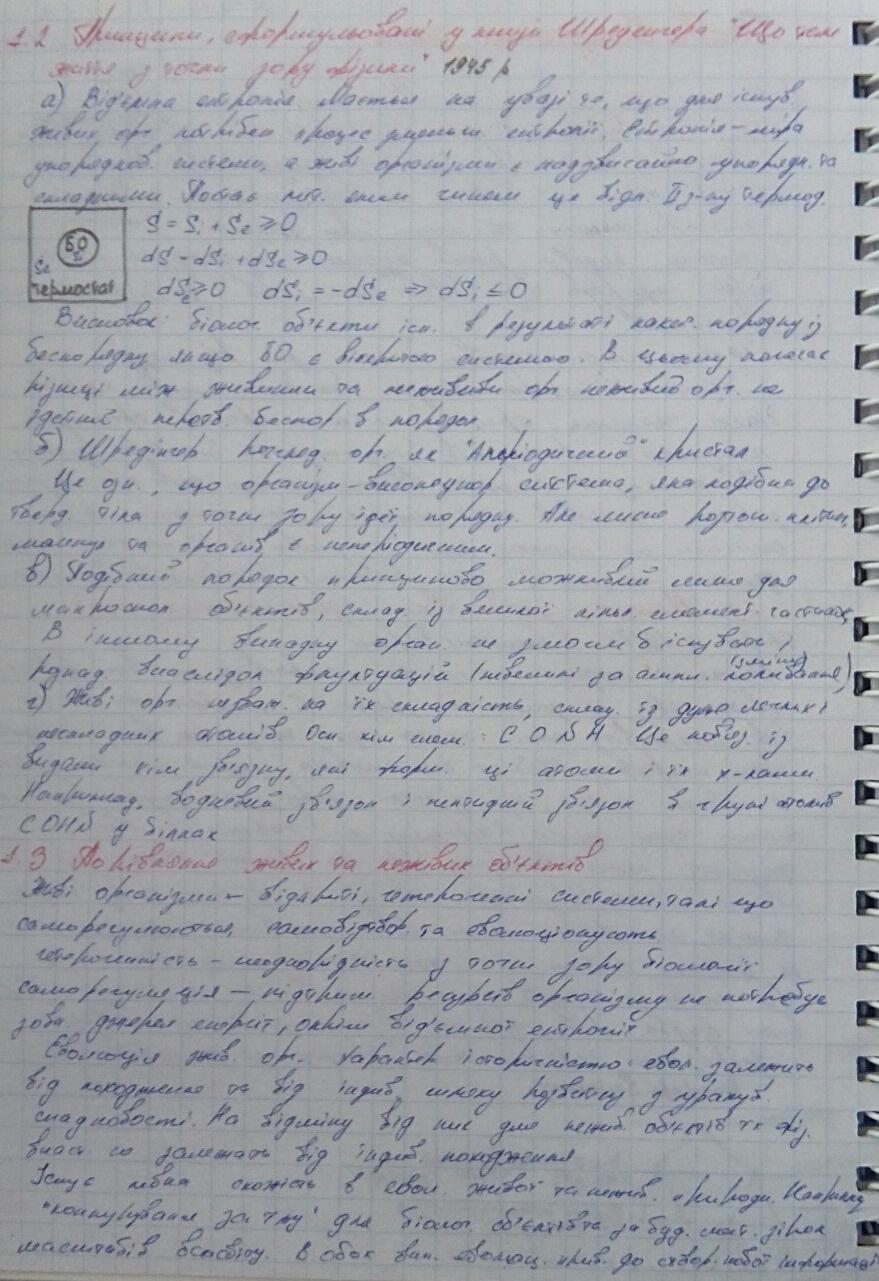 1.2 Принципи, сформульовані у книзі Шредінгера "Що таке
життя з точки зору фізики" 1945 р
а) Від'ємна ентропія. Мається на увазі те, що для існув.
живих орг. потрібен процес зменьш. ентропії. Ентропія – міра
упорядков. системи, а живі організми є надзвичайно упорядк. та
складними. Постає пит. яким чином це відп. II з-ну термод.
S = Si + Se ≥ 0
БО
Si
Se
термостат
dS = dSi + dSe ≥ 0
dSe ≥ 0 dSi = -dSe ⇒ dSi ≤ 0
Висновок: біолог. об'єкти існ. в результаті порядку із
беспорядку якщо БО є відкритою системою. В цьому полягає
різниці між живими та неживими орг. неживий орг. не
здатний перетв. беспор. в порядок.
б) Шредінгер розгляд. орг. як "Аперіодичний" кристал
Це озн., що організм – високоупор. система, яка подібна до
тверд. тіла з точки зору ідеї порядку. Але лише розташ. клітин,
молекул та органів є неперіодичним.
в) Подібний порядок принципово можливий лише для
макроскоп. об'єктів, склад. із великої кільк. елемент. частинок
В іншому випадку орган. не змогли б існувати і
внаслідок флуктуацій (невеликі за ампл. коливання)
(зміни)
г) Живі орг. незваж. на їх складність, склад. із дуже легких і
нескладних атомів. Осн. хім. елем.: C O N H. Це пов'яз. із
видами хім. зв'язку, які форм. ці атоми і їх х-ками.
Наприклад, водневий зв'язок і пептидний зв'язок в групі атомів
COHN у білках
1.3 Порівняння живих та неживих об'єктів
Живі організми – відкриті, гетерогенні системи, такі що
саморегулюються, самовідтвор. та еволюціонують
гетерогенність – неоднорідність з точки зору біології
саморегуляція – підтрим. ресурсів організму не потребує
зовн. джерел енергії, окрім від'ємної ентропії
Еволюція жив. орг. характер. історичністю. евол. залежить
від походження та від індив. шляху розвитку з урахув.
спадковості. На відміну від них для нежив. об'єктів їх фіз.
власт. не залежать від індив. походження
Існує певна схожість в евол. живої та нежив. природи. Наприклад
"конкурування за їжу" для біолог. об'єктів та за буд. мат. зірок
масштабів всесвіту. В обох вип. еволюц. прив. до створ. нової інформації